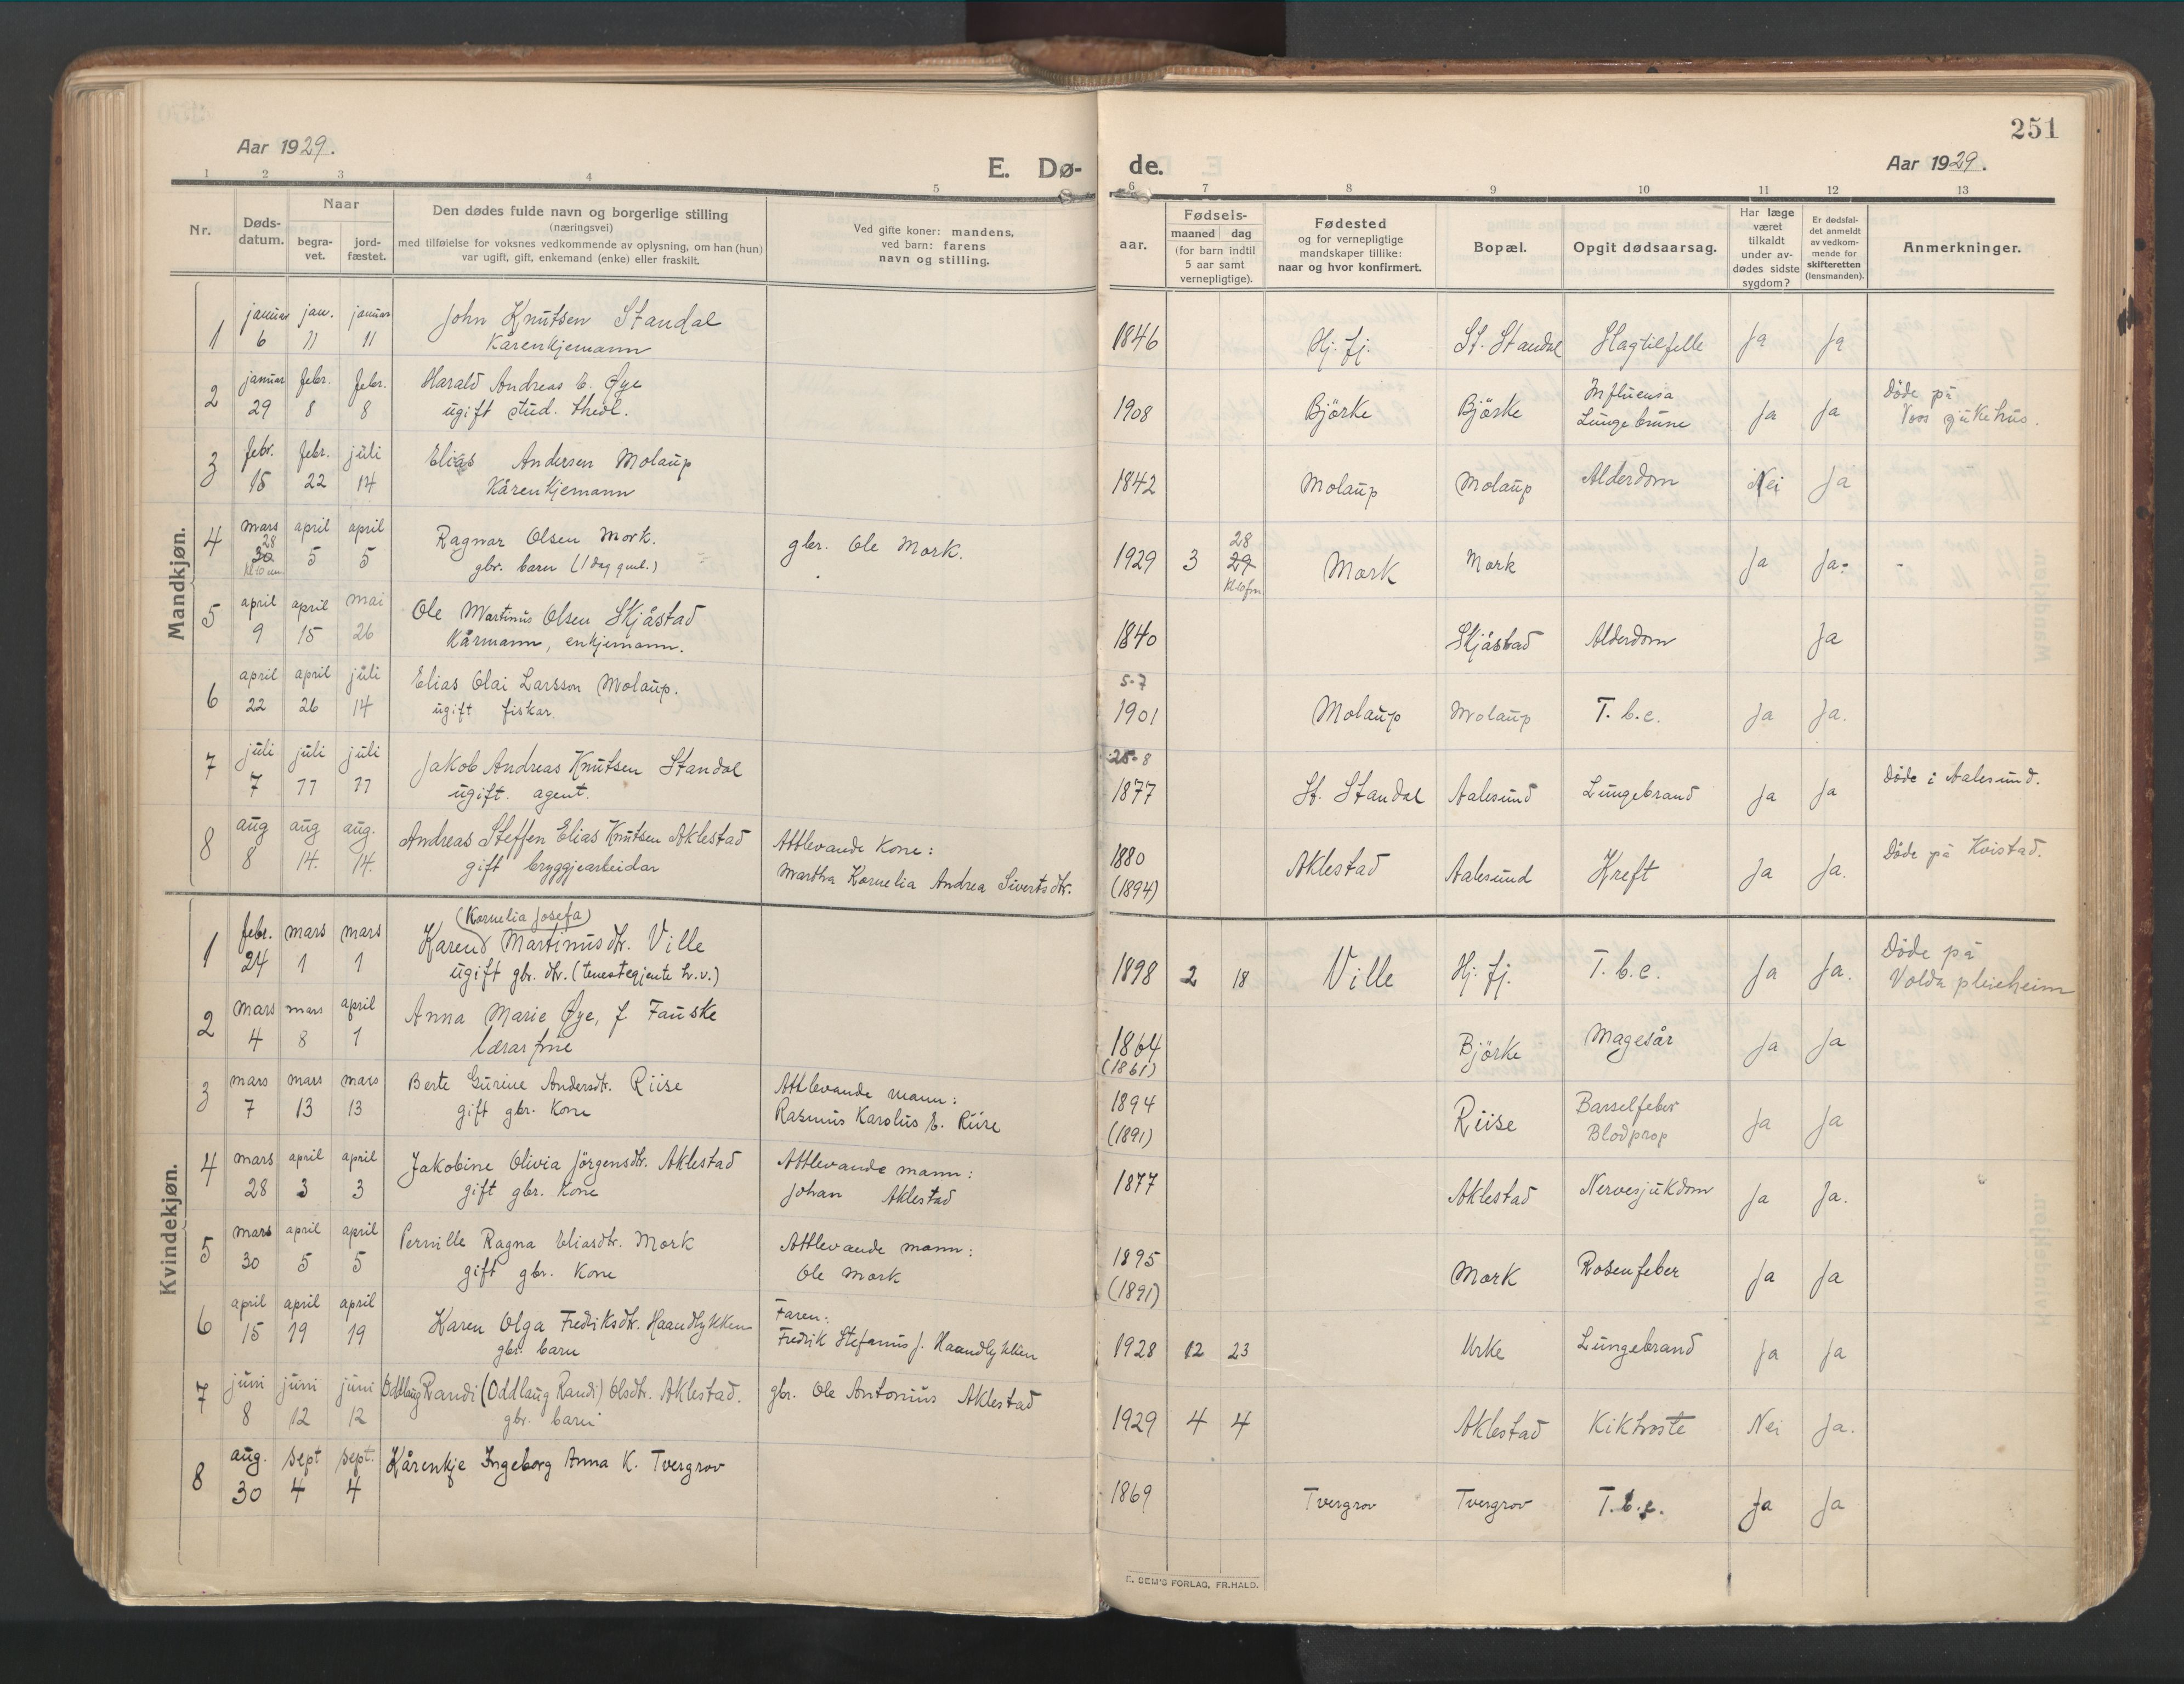 251
Aar 1929.
E. Dø-
de.
Aar 1929.
1 2 3 4 5 6 7 8 9 10 11 12 13
Nr.
Døds-
datum.
Naar
begra-
vet.
jord-
fæstet.
Den dødes fulde navn og borgerlige stilling
(næringsvei)
med tilføielse for voksnes vedkommende av oplysning, om han (hun)
var ugift, gift, enkemand (enke) eller fraskilt.
Ved gifte koner: mandens,
ved barn: farens
navn og stilling.
Fødsels-
aar.
maaned dag
(for barn indtil
5 aar samt
vernepligtige).
Fødested
og for vernepligtige
mandskaper tillike:
naar og hvor konfirmert.
Bopæl.
Opgit dødsaarsag.
Har læge
været
tilkaldt
under av-
dødes sidste
sygdom?
Er dødsfal-
det anmeldt
av vedkom-
mende for
skifteretten
(lensmanden).
Anmerkninger.
Mandkjøn.
januar jan. januar John Knutsen Standal
1 6 11 11 Kårenkjemann 1846 Hj. fj. St. Standal Slagtilfelle Ja Ja
januar febr. febr. Harald Andreas E. Øye Influensa Døde på
2 29 8 8 ugift stud. theol. 1908 Björke Björke Lungebrune Ja Ja Voss sjukehus.
febr. febr. juli Elias Andersen Molaup
3 15 22 14 Kårenkjemann 1842 Molaup Molaup Alderdom Nei Ja
mars april april Ragnar Olsen Mork. gbr. Ole Mork. 28
4 28 30 5 5 gbr. barn (1 dag gml.) 1929 3 29 Mork Mork Ja Ja.
Kl 10 em Kl 10 fm
april april mai Ole Martinus Olsen Skjåstad
5 9 15 26 Kårmann, enkjemann. 1840 Skjåstad Alderdom Ja
april april juli Elias Olai Larsson Molaup. 5-7
6 22 26 14 ugift fiskar. 1901 Molaup Molaup T.b.c. Ja Ja.
juli juli juli Jakob Andreas Knutsen Standal 25-8 Døde i Aalesund.
7 7 11 11 ugift. agent. 1877 St. Standal Aalesund Lungebrand Ja Ja
aug aug aug. Andreas Steffen Elias Knutsen Aklestad Attlevande Kone: 1880 Døde på Kvistad.
8 8 14. 14. gift bryggjearbeidar Martha Kornelia Andrea Sivertsdtr. (1894) Aklestad Aalesund Kreft Ja Ja.
Kvindekjøn.
(Kornelia Josefa)
febr. mars mars Karen Martinusdtr. Ville Døde på
1 24 1 1 ugift gbr. dtr. (tenestegjente h.v.) 1898 2 18 Ville Hj. fj. T.b.c. Ja Ja. Volda pleieheim
mars mars april Anna Marie Øye, f. Fauske 1864
2 4 8 1 lærarfrue (1861) Björke Magesår Ja Ja
mars mars mars Berte Gurine Andersdtr. Riise Attlevande mann: 1894 Barselfeber
3 7 13 13 gift gbr. Kone Rasmus Karolus E. Riise (1891) Riise Blodprop Ja Ja
mars april april Jakobine Olivia Jörgensdtr. Aklestad Attlevande mann:
4 28 3 3 gift gbr. Kone Johan Aklestad 1877 Aklestad Nervesjukdom Ja Ja.
mars april april Pernille Ragna Eliasdtr. Mork Attlevande mann: 1895
5 30 5 5 gift gbr. Kone Ole Mork (1891) Mork Rosenfeber Ja Ja
april april april Karen Olga Fredriksdtr. Haandlykken Faren:
6 15 19 19 gbr. barn Fredrik Stefanus J. Haandlykken 1928 12 23 Urke Lungebrand Ja Ja
juni juni juni Oddlaug Randi (Oddlaug Randi) Olsdtr. Aklestad. gbr. Ole Antonius Aklestad
7 8 12 12 gbr. barn 1929 4 4 Aklestad Kikhoste Nei Ja.
aug. sept sept. Kårenkje Ingeborg Anna K. Tvergrov
8 30 4 4 1869 Tvergrov Tvergrov T.b.c. Ja Ja
E. SEM'S FORLAG, FR.HALD.